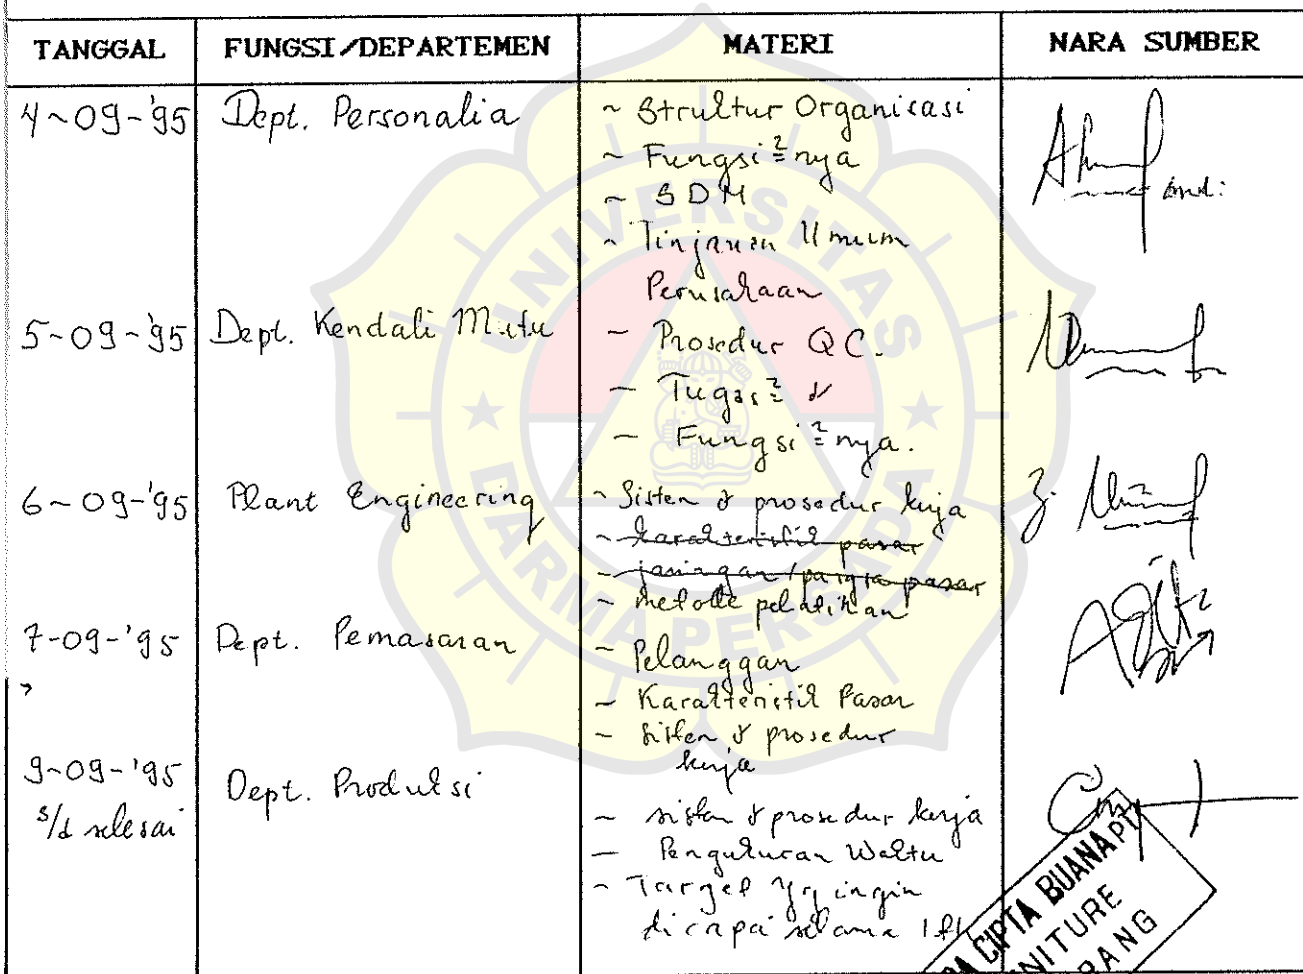 TANGGAL FUNGSI/DEPARTEMEN MATERI NARA SUMBER
4-09-'95 Dept. Personalia - Struktur Organisasi
- Fungsi²nya
- SDM
- Tinjauan Umum
Perusahaan
5-09-'95 Dept. Kendali Mutu - Prosedur QC.
- Tugas² &
- Fungsi²nya.
6-09-'95 Plant Engineering - Sistem & prosedur kerja
- karakteristik pasar
- jaringan/pangsa pasar
- metode pelatihan
7-09-'95 Dept. Pemasaran - Pelanggan
- Karakteristik Pasar
- Sistem & prosedur
kerja
9-09-'95 Dept. Produksi
s/d selesai - sistem & prosedur kerja
- Pengukuran Waktu
- Target yg ingin
dicapai selama
CIPTA BUANA PT
UNIVERSITAS
DARMA PERSADA